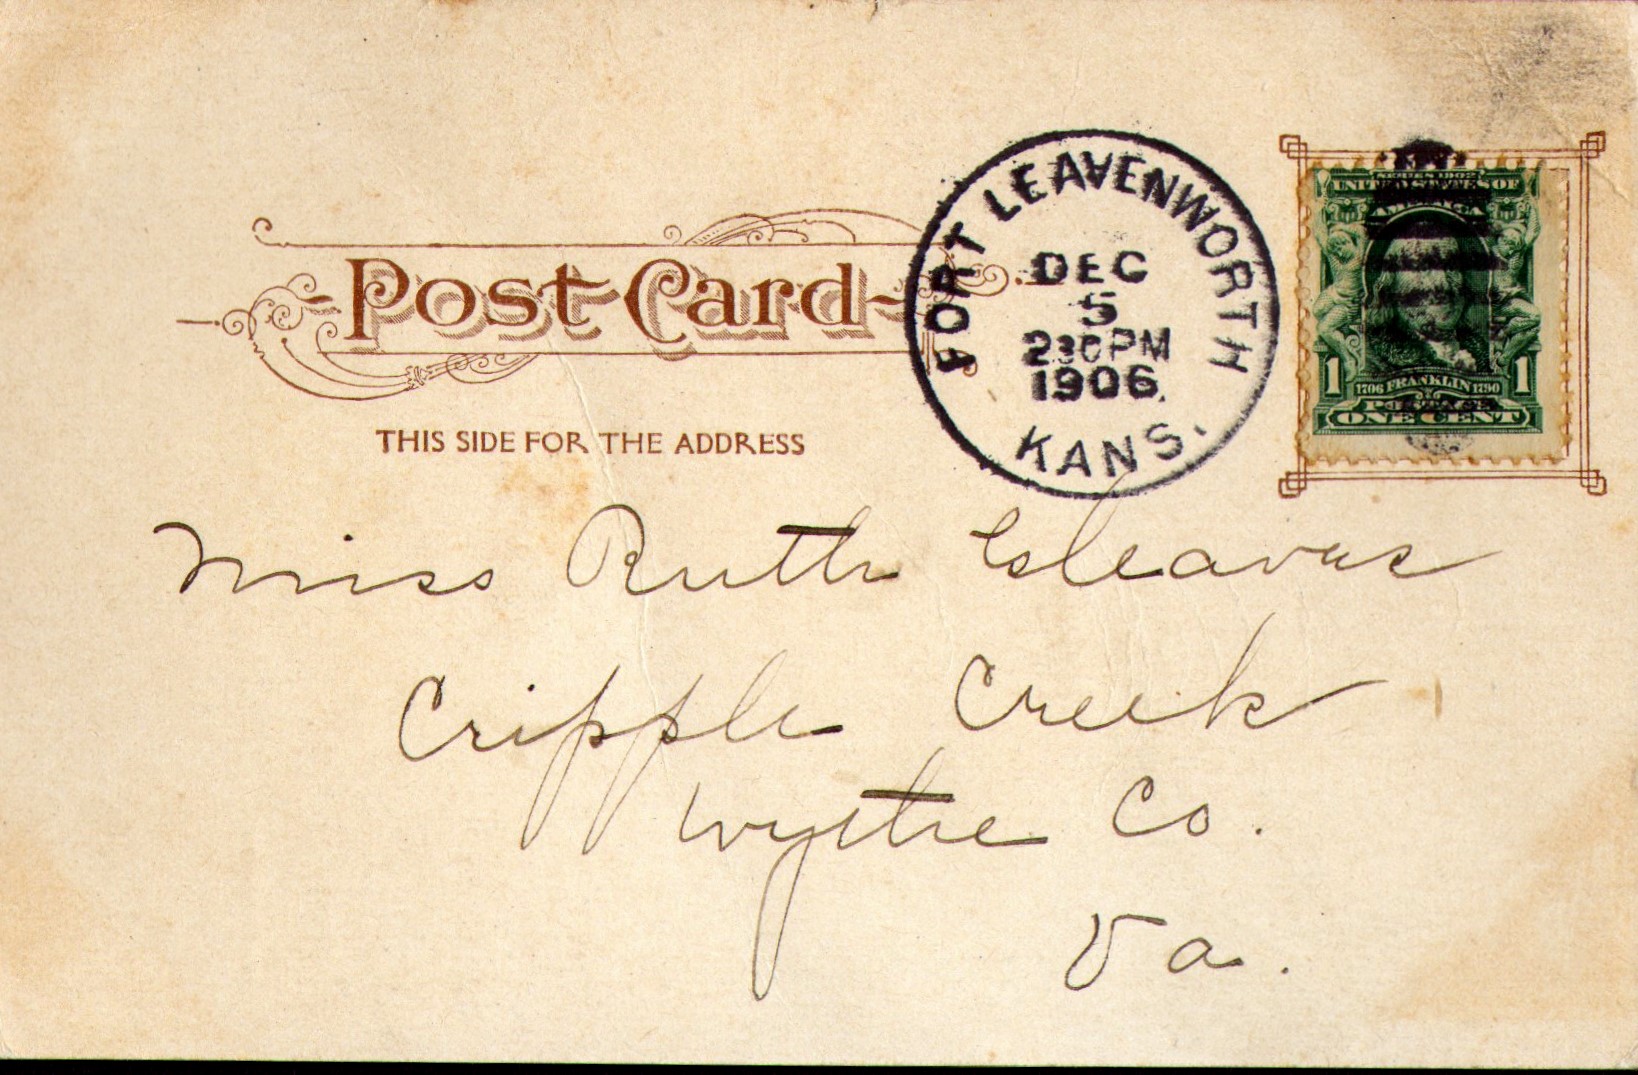 Post Card
THIS SIDE FOR THE ADDRESS
FORT LEAVENWORTH
DEC
5
230PM
1906
KANS.
SERIES 1902
UNITED STATES OF
AMERICA
1 1706 FRANKLIN 1790 1
POSTAGE
ONE CENT
Miss Ruth Gleaves
Cripple Creek
Wythe Co.
Va.